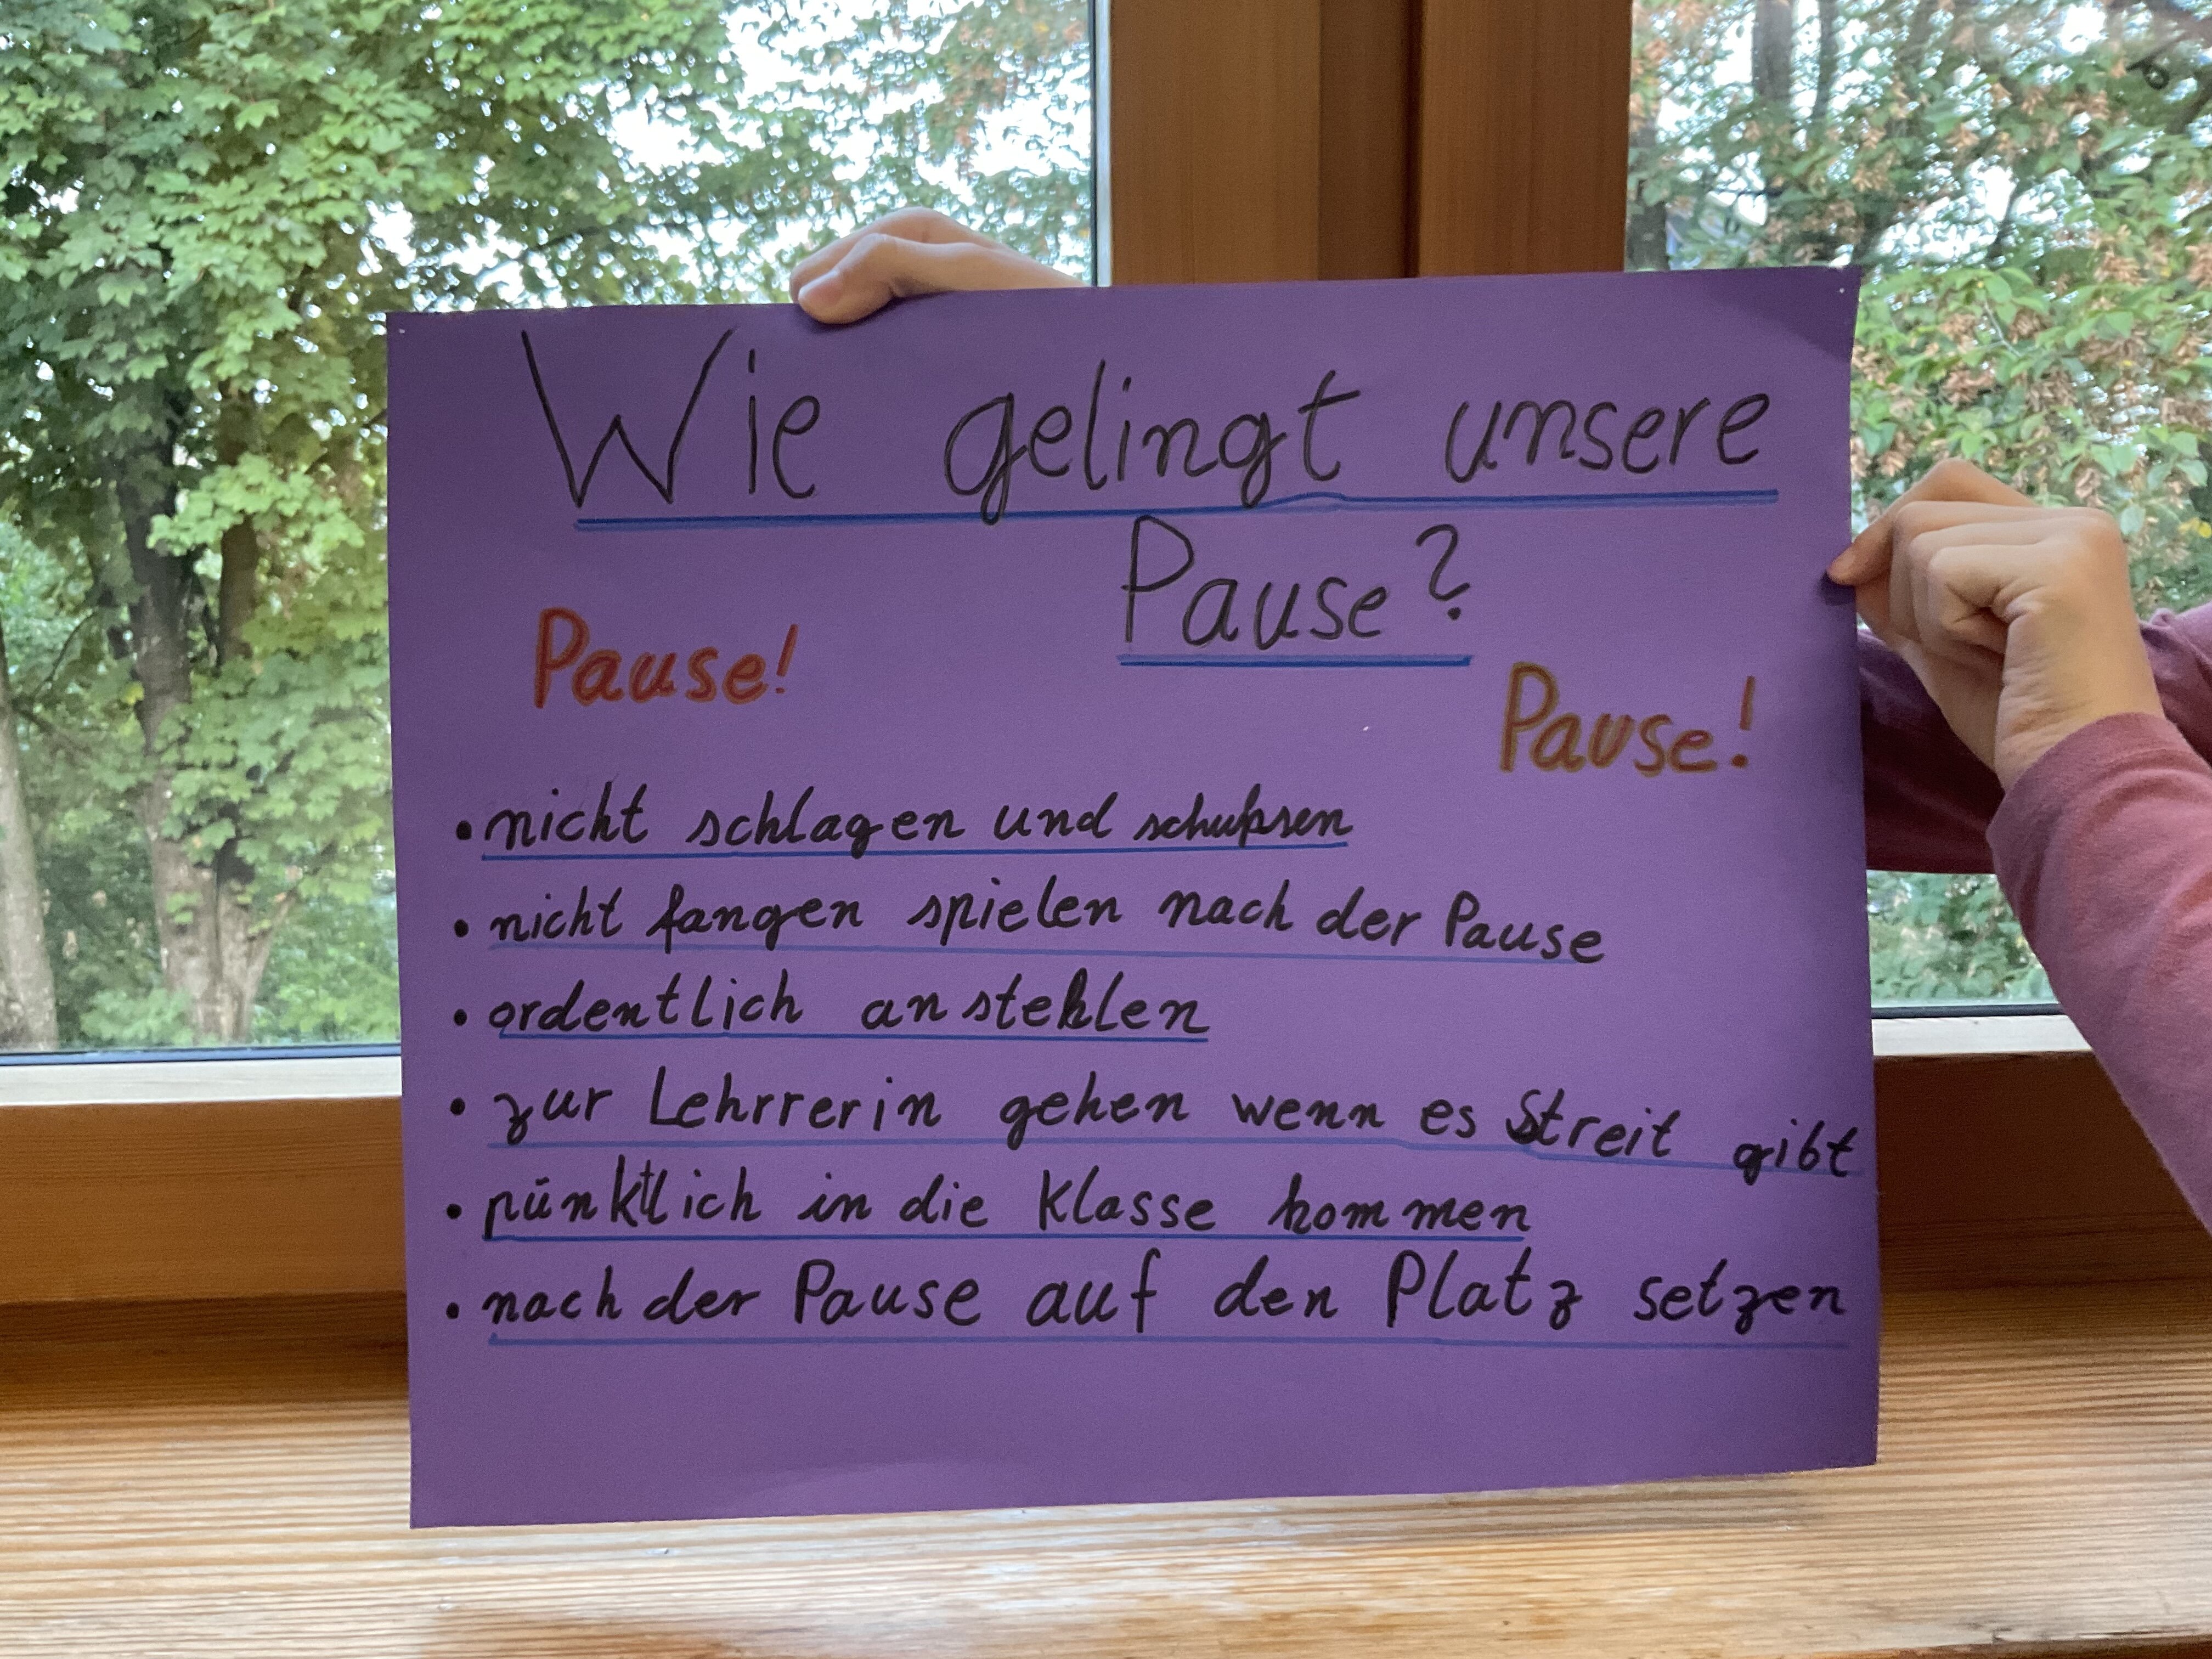 Wie gelingt unsere
Pause?
Pause!
Pause!
• nicht schlagen und schupsen
• nicht fangen spielen nach der Pause
• ordentlich anstehlen
• zur Lehrrerin gehen wenn es Streit gibt
• pünktlich in die Klasse kommen
• nach der Pause auf den Platz setzen